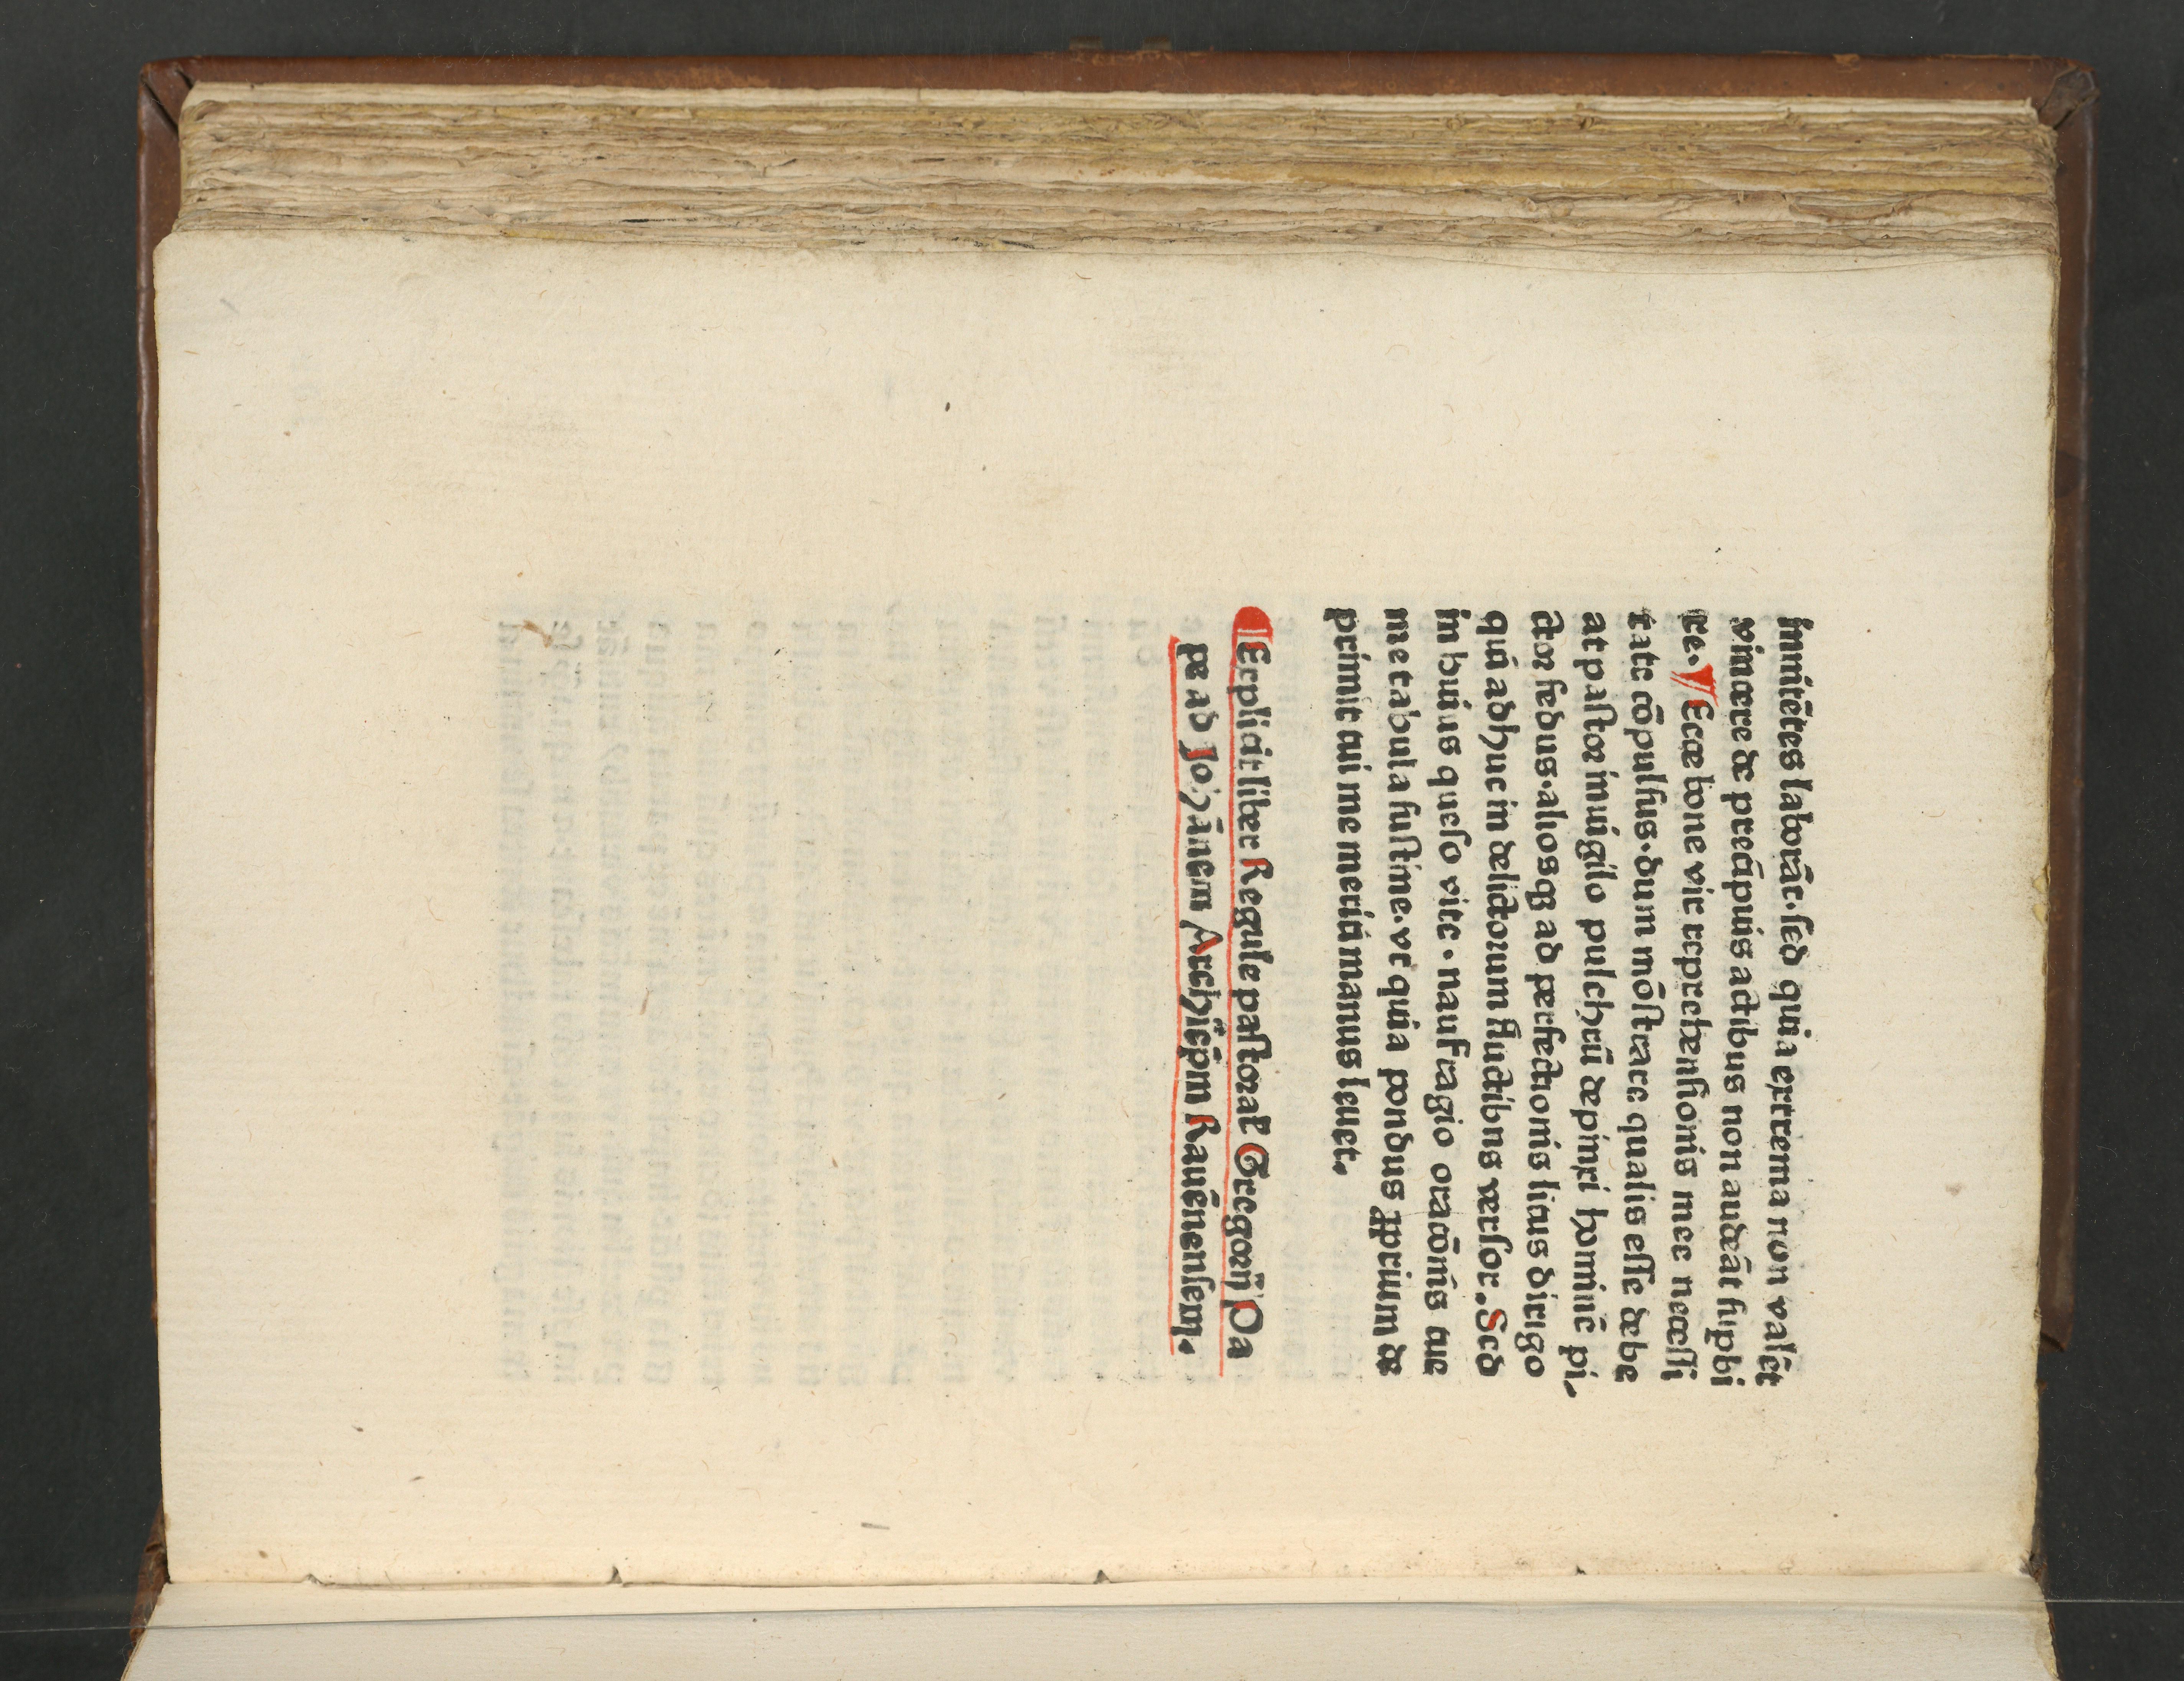 inuítētes laborāt·sed quia extrema non valēt
vincere de precípuis actibus non audeāt supbi
re. Ecce bone vir reprehensionis mee necessi
tate cōpulsus·dum mōstrare qualis esse debe
at pastor inuigilo pulchrū depinxi hominē pi-
ctor fedus·aliosqꝫ ad perfectionis litus dirigo
quí adhuc in delictorum fluctibus versor. Sed
in huius queso vite·naufragio oratōnis tue
me tabula sustine·vt quia pondus ꝓprium de
primit tui me meriti manus leuet.
Explicit liber Regule pastoral Gregorij Pa
pe ad Johānem Archiēpm Rauēnensem.